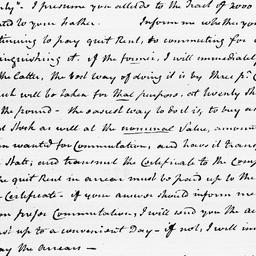 ly". I presume you allude to the Tract of 2000
to your Father. Inform me whether you
tinuing to pay quit Rent, or commuting for
inguishing it. If the former, I will immediately
the latter, the best way of doing it is by three pr. C
ch will be taken for that purpose, at twenty sh
the pound - the easiest way to do it, is to buy a
Stock as will at the nominal value, amoun
m wanted for Commutation, and have it transf
State; and transmit the Certificate to the Comp
he quit Rent in arrear must be paid up to the
e Certificate - if your answer should inform me
prefer Commutation, I will send you the ac
up to a convenient Day - if not, I will im
ay the Arrears -